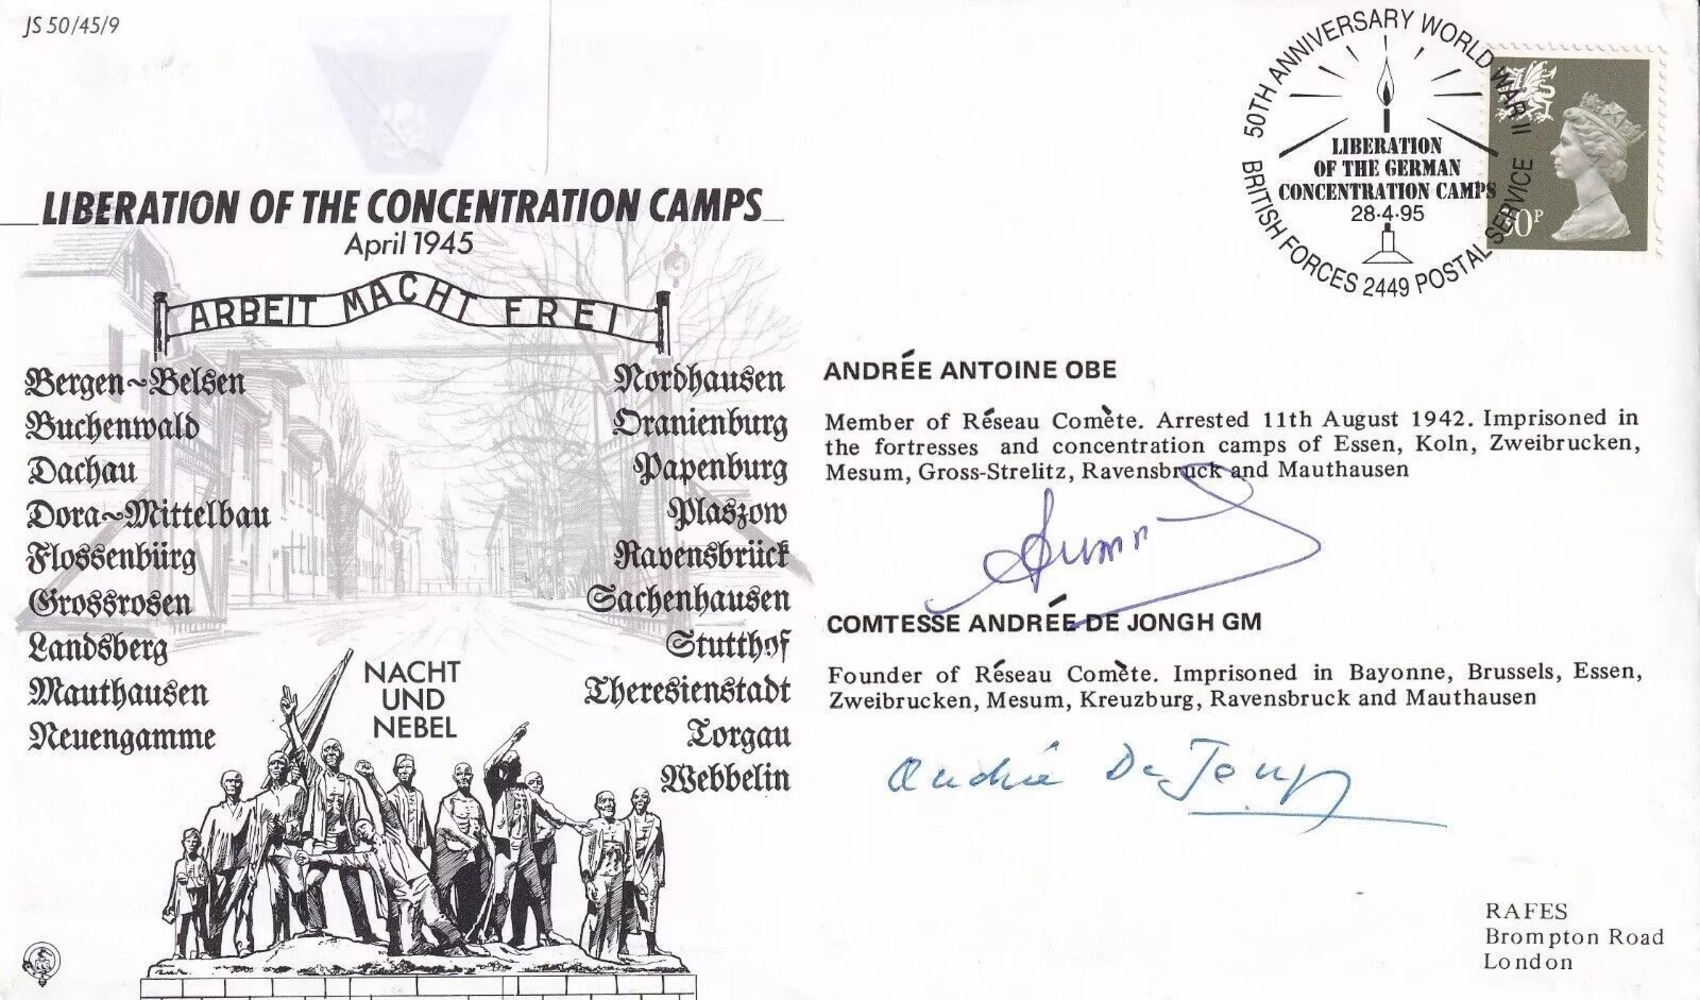 JS 50/45/9
50TH ANNIVERSARY WORLD WAR II
LIBERATION
OF THE GERMAN
CONCENTRATION CAMPS
28·4·95
BRITISH FORCES 2449 POSTAL SERVICE
LIBERATION OF THE CONCENTRATION CAMPS
April 1945
ARBEIT MACHT FREI
Bergen~Belsen
Buchenwald
Dachau
Dora~Mittelbau
Flossenbürg
Grossrosen
Landsberg
Mauthausen
Neuengamme
Nordhausen
Oranienburg
Papenburg
Plaszow
Ravensbrück
Sachenhausen
Stutthof
Theresienstadt
Torgau
Webbelin
NACHT
UND
NEBEL
ANDRÉE ANTOINE OBE
Member of Réseau Comète. Arrested 11th August 1942. Imprisoned in
the fortresses and concentration camps of Essen, Koln, Zweibrucken,
Mesum, Gross-Strelitz, Ravensbruck and Mauthausen
COMTESSE ANDRÉE DE JONGH GM
Founder of Réseau Comète. Imprisoned in Bayonne, Brussels, Essen,
Zweibrucken, Mesum, Kreuzburg, Ravensbruck and Mauthausen
Andrée De Jongh
RAFES
Brompton Road
London